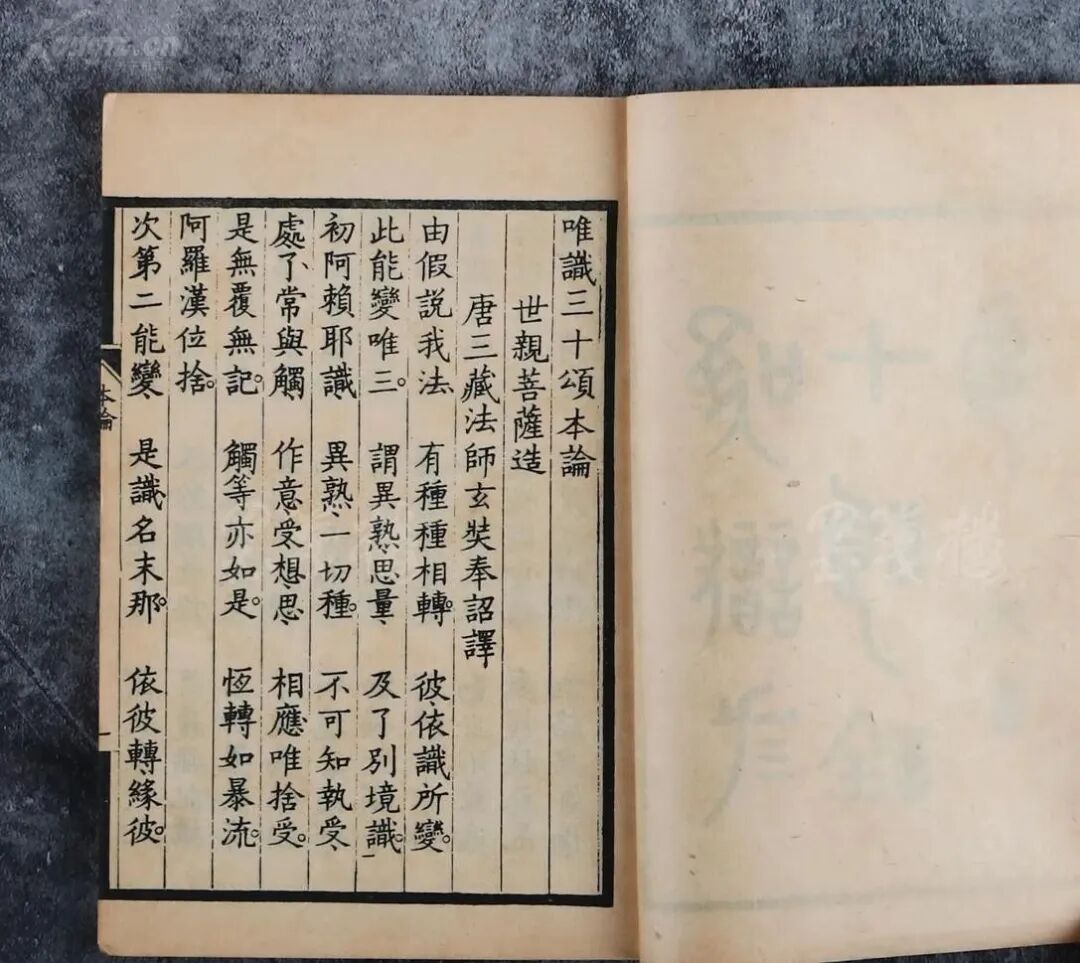 唯識三十頌本論
世親菩薩造
唐三藏法師玄奘奉詔譯
由假說我法 有種種相轉。 彼、依識所變。
此能變唯三。 謂異熟、思量、 及了別境識。
初阿賴耶識、 異熟、一切種。 不可知執受、
處、了、常與觸、 作意、受、想、思、 相應唯捨受。
是無覆無記。 觸等亦如是。 恆轉如暴流。
阿羅漢位捨。
次第二能變、 是識名末那。 依彼轉、緣彼。
本論
一